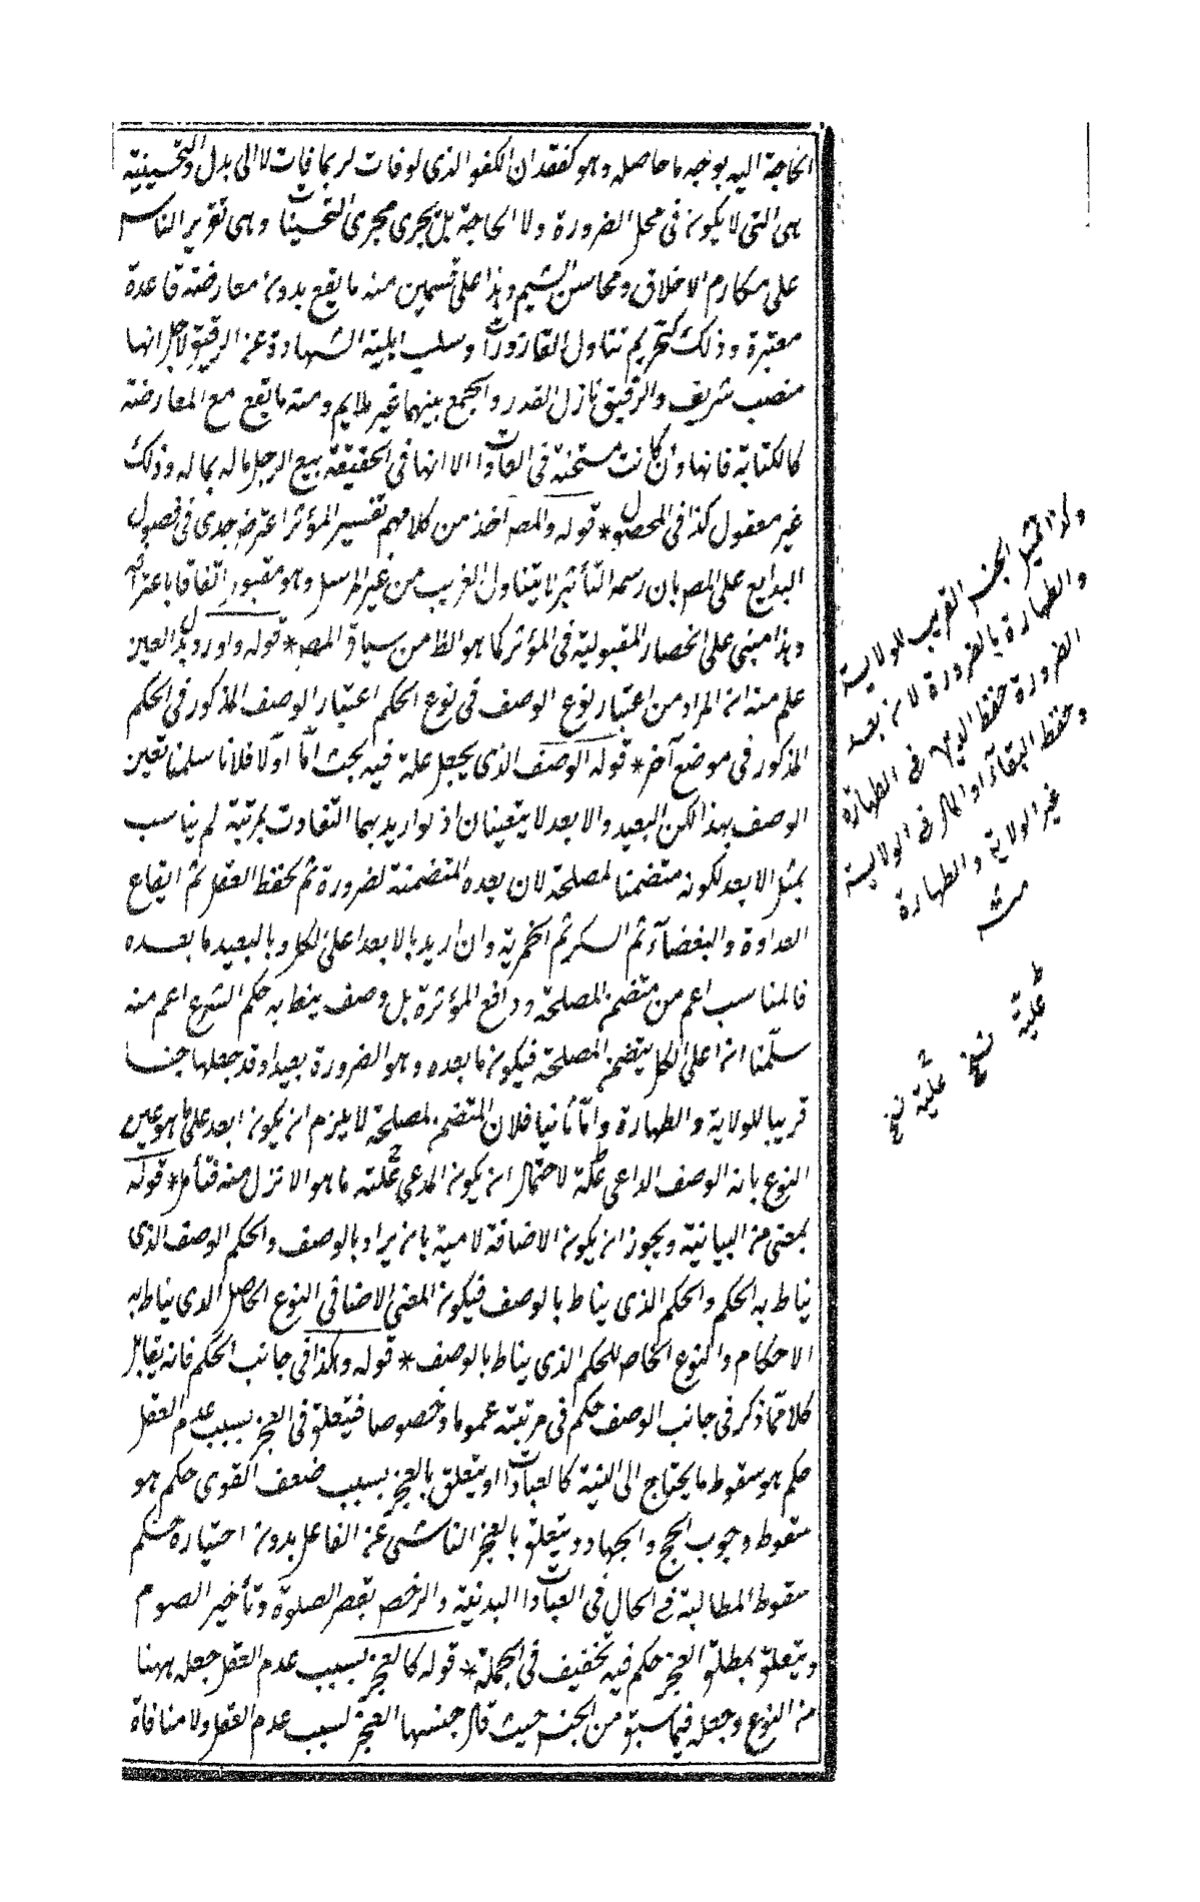 الحاجة اليه بوجه ما حاصله وهو كفقدان الكفو الذى لو فات لربما فات لا الى بدل والتحسينية
هى التى لا يكون فى محل الضرورة ولا الحاجة بل يجرى مجرى التحسينات وهى تقرير الناس
على مكارم الاخلاق ومحاسن الشيم وهذا على قسمين منه ما يقع بدون معارضة قاعدة
معتبرة وذلك كتحريم تناول القاذورات وسلب اهلية الشهادة عن الرقيق لاجل انها
منصب شريف والرقيق نازل القدر والجمع بينهما غير ملايم ومنه ما يقع مع المعارضة
كالكتابة فانها وان كانت مستحسنة فى العادات الا انها فى الحقيقة بيع الرجل ماله بماله وذلك
غير معقول كذا فى المحصول * قوله والمص اخذ من كلامهم تفسير المؤثر اعترض جدى فى فصول
البدايع على المص بان رسمه التأثير نا يتناول الغريب من غير المرسل وهو مقبول اتفاقا باعترافه
وهذا مبنى على انحصار المقبولية فى المؤثر كما هو الظ من سياق المص * قوله واورد بدل العين
علم منه ان المراد من اعتبار نوع الوصف فى نوع الحكم اعتبار الوصف المذكور فى الحكم
المذكور فى موضع آخر * قوله الوصف الذى يجعل علة فيه بحث اما اولا فلانا سلمنا تعين
الوصف بهذا لكن البعيد والابعد لا يتعينان اذ لو اريد بهما التفاوت بمرتبة لم يناسب
بمثل الابعد لكونه متضمنا لمصلحة لان بعده المتضمنة لضرورة ثم لحفظ العقل ثم ايقاع
العداوة والبغضآء ثم السكر ثم الخمرية وان اريد بالابعد اعلى الكل وبالبعيد ما بعده
فالمناسب اعم من متضمن المصلحة ودافع المؤثرة بل وصف ينط به حكم الشرع اعم منه
سلّمنا ان اعلى الكل يتضمن المصلحة فيكون ما بعده وهو الضرورة بعيدا وقد جعلها جنسا
قريبا للولاية والطهارة وامّا ثانيا فلان المتضمن لمصلحة لا يلزم ان يكون ابعد على ما هو عين
النوع بانه الوصف الداعى علّة لاحتمال ان يكون المدعى علّته ما هو الانزل منه فتأمل * قوله
بمعنى من البيانية ويجوز ان يكون الاضافة لامية بان يراد بالوصف والحكم الوصف الذى
يناط به الحكم والحكم الذى يناط بالوصف فيكون المعنى الاضافى النوع الحاصل الذى يناط به
الاحكام والنوع الخاص للحكم الذى يناط بالوصف * قوله وهكذا فى جانب الحكم فانه يقابل
كلا مما ذكر فى جانب الوصف حكم فى مرتبته عموما وخصوصا فيتعلق فى العجز بسبب عدم العقل
حكم هو سقوط ما يحتاج الى النية كالعبادات او يتعلق بالعجز بسبب ضعف القوى حكم هو
سقوط وجوب الحج والجهاد ويتعلق بالعجز الناشى عن الفاعل بدون اختياره حكم
سقوط المطالبة فى الحال فى العبادات البدنية والرخص بقصر الصلوة وتأخير الصوم
ويتعلق بمطلق العجز حكم فيه تخفيف فى الجملة * قوله كالعجز بسبب عدم العقل جعله ههنا
من النوع وجعله فيما سبق من الجنس حيث قال جنسها العجز لسبب عدم العقل ولا منافاة
وكذا تمثيل الجنس القريب للولاية
والطهارة بالضرورة لان بعد
الضرورة حفظ فى الطهارة
وحفظ البقآء او المال فى الولاية
غير الولاية والطهارة
منه
علية نسخ
علية نسخ